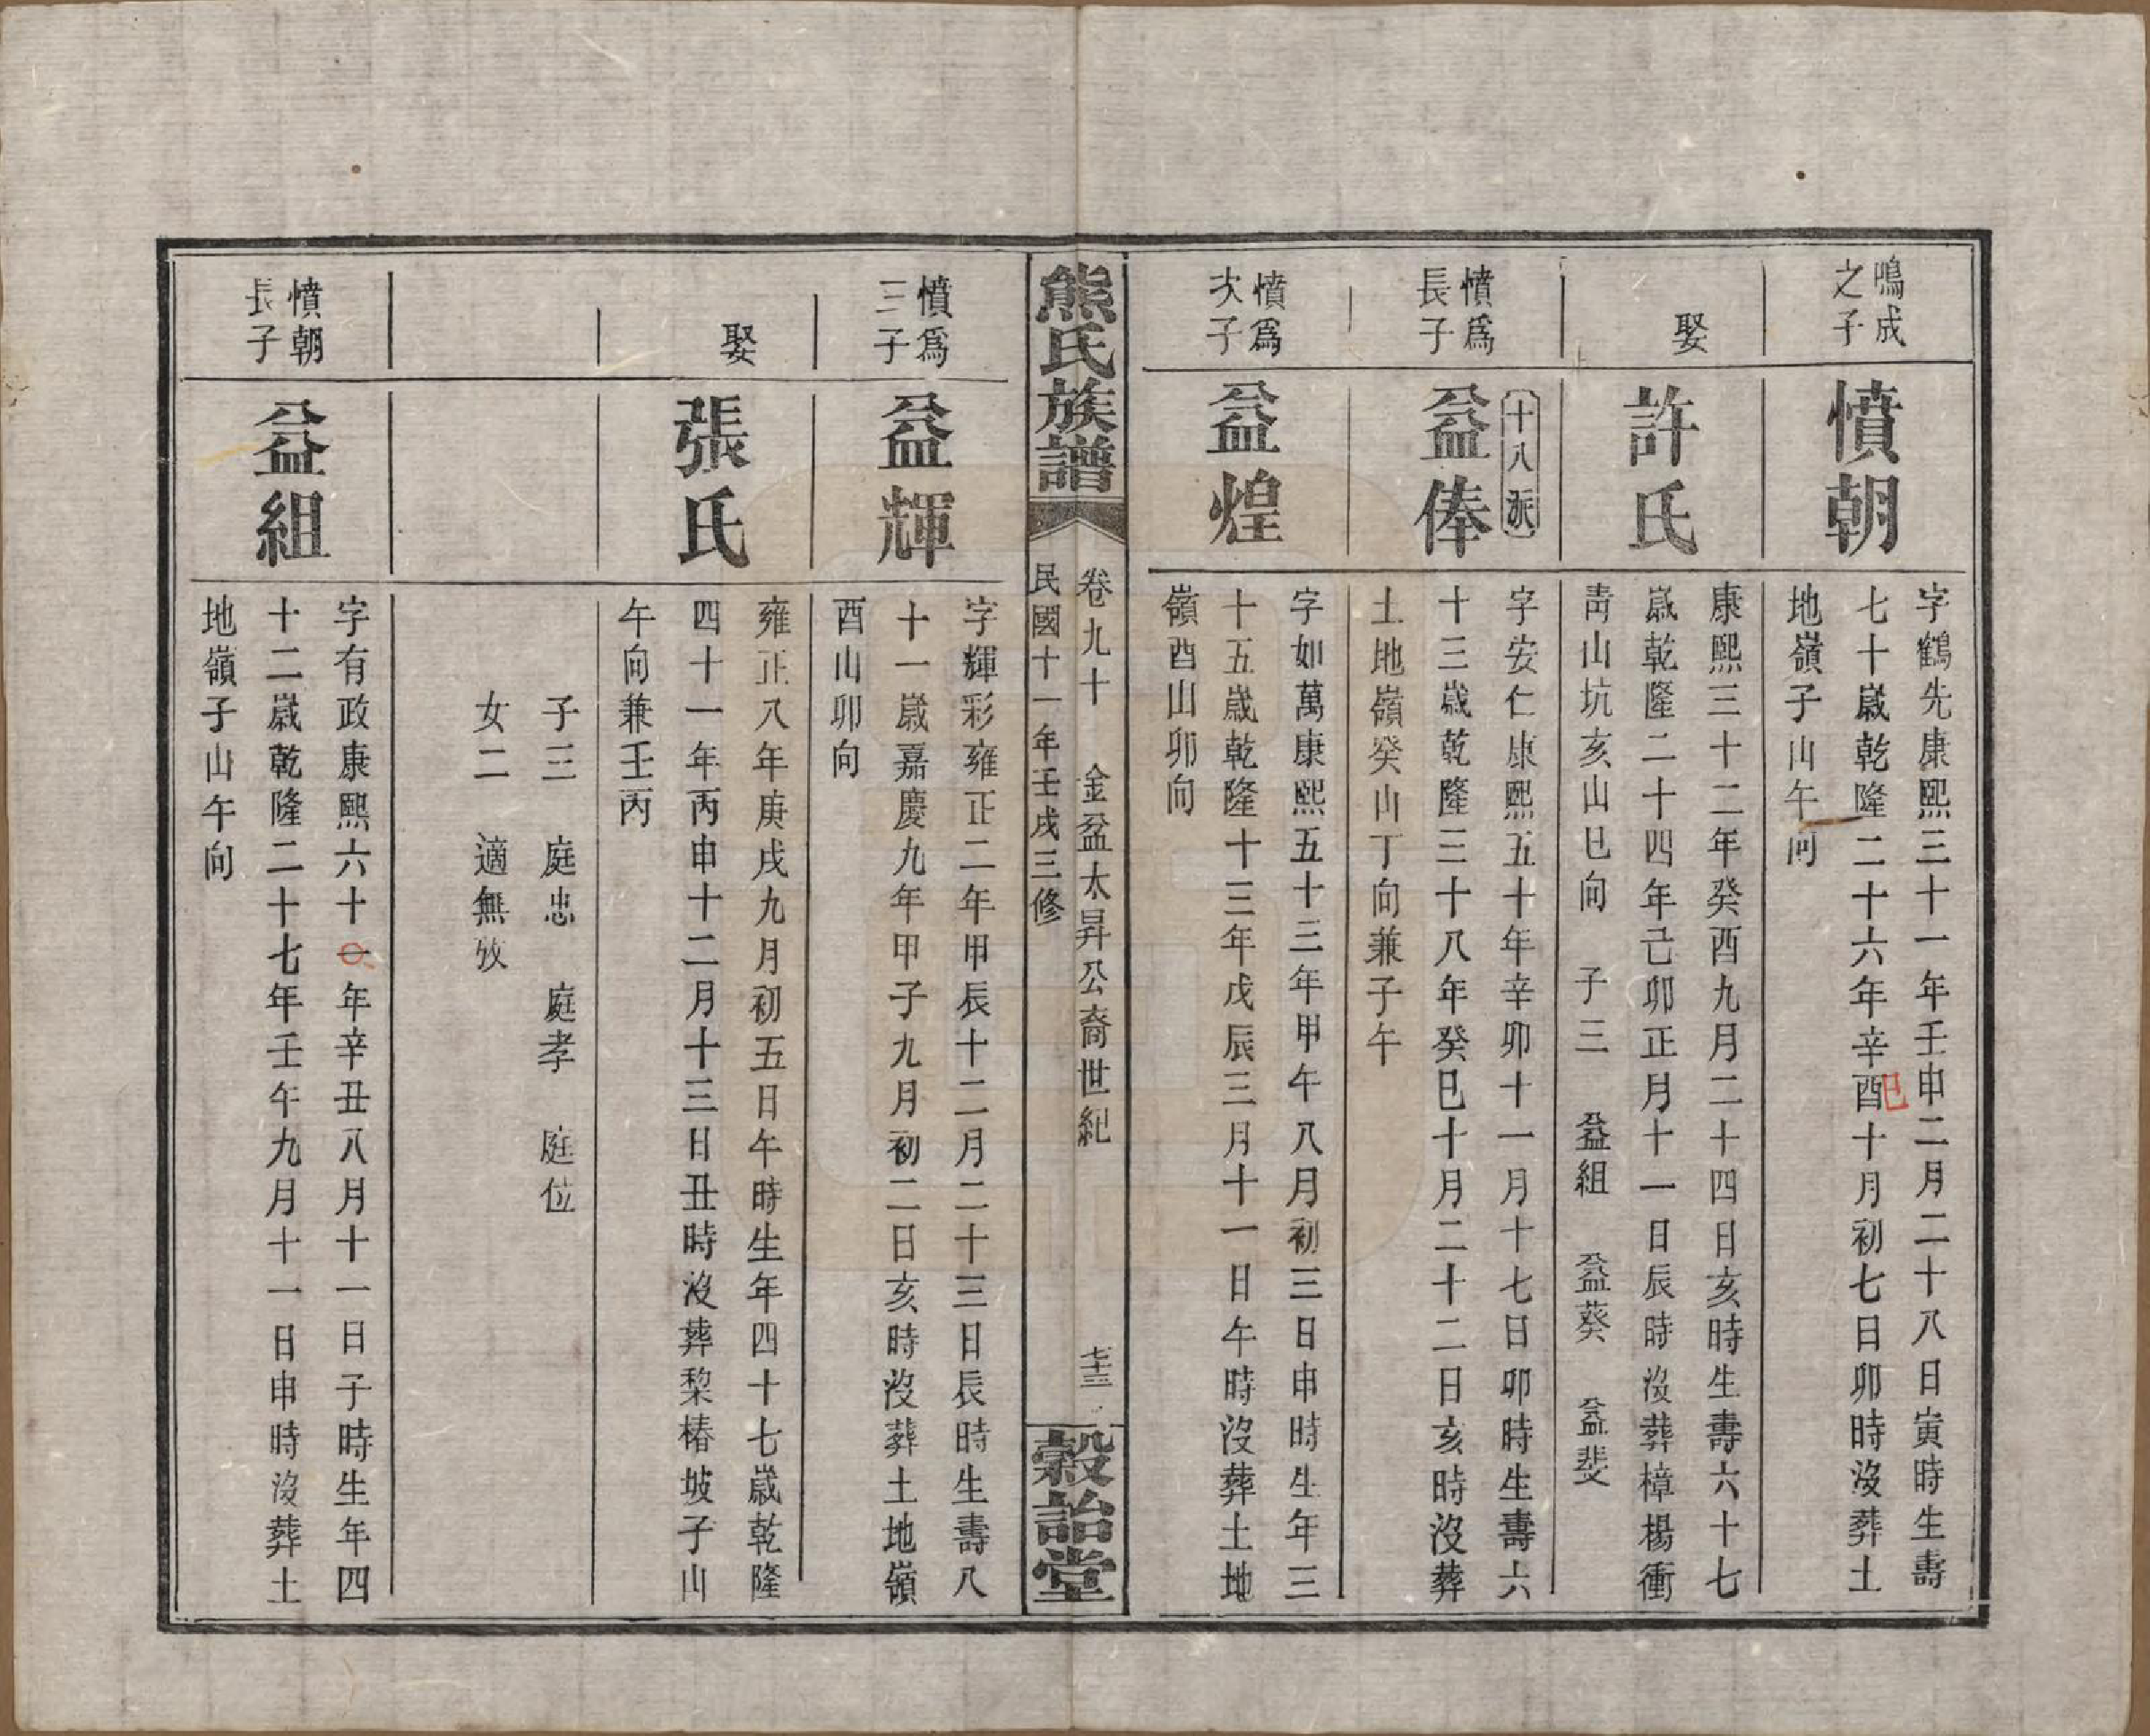 鳴成
之子
憤朝
字鶴先康熙三十一年壬申二月二十八日寅時生壽
七十歲乾隆二十六年辛酉十月初七日卯時沒葬土
巳
地嶺子山午向
娶
許氏
康熙三十二年癸酉九月二十四日亥時生壽六十七
歲乾隆二十四年己卯正月十一日辰時沒葬樟楊衝
靑山坑亥山巳向 子三 益組 益葵 益斐
十八派
憤爲
長子
益俸
字安仁康熙五十年辛卯十一月十七日卯時生壽六
十三歲乾隆三十八年癸巳十月二十二日亥時沒葬
土地嶺癸山丁向兼子午
憤爲
次子
益煌
字如萬康熙五十三年甲午八月初三日申時生年三
十五歲乾隆十三年戊辰三月十一日午時沒葬土地
嶺酉山卯向
熊氏族譜
卷九十 金盆太昇公裔世紀 七十三
民國十一年壬戌三修
穀詒堂
憤爲
三子
益輝
字輝彩雍正二年甲辰十二月二十三日辰時生壽八
十一歲嘉慶九年甲子九月初二日亥時沒葬土地嶺
酉山卯向
娶
張氏
雍正八年庚戌九月初五日午時生年四十七歲乾隆
四十一年丙申十二月十三日丑時沒葬棃椿坡子山
午向兼壬丙
子三 庭忠 庭孝 庭位
女二 適無攷
憤朝
長子
益組
字有政康熙六十一年辛丑八月十一日子時生年四
十二歲乾隆二十七年壬午九月十一日申時沒葬土
地嶺子山午向